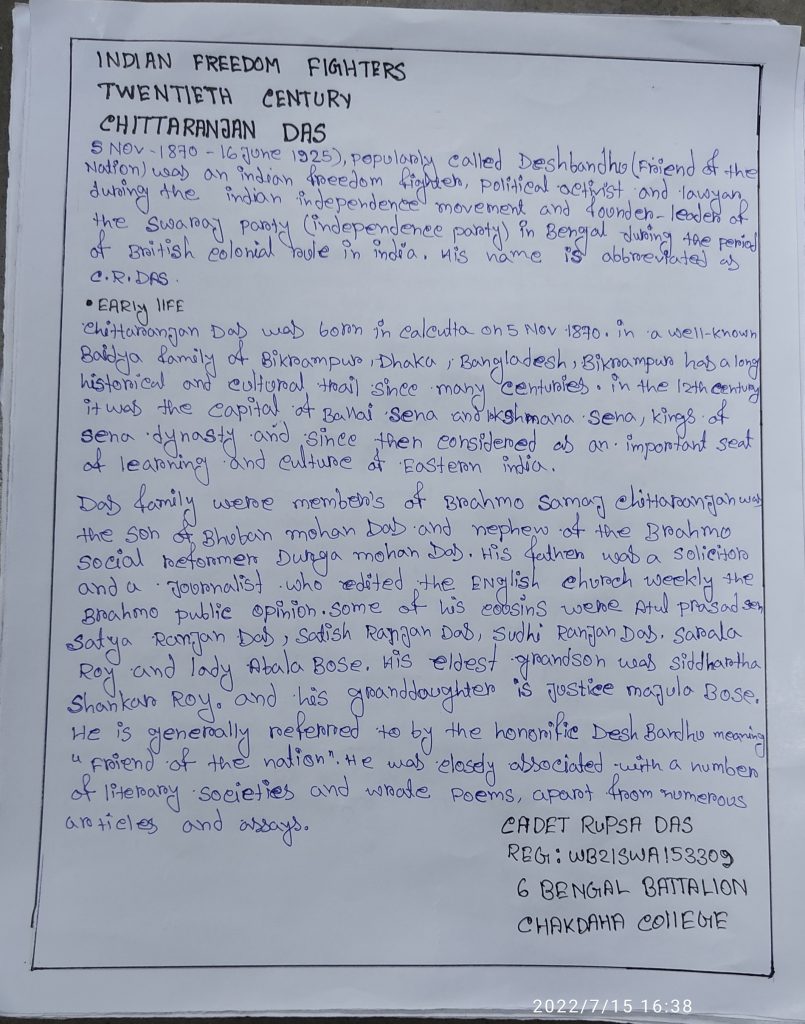 INDIAN FREEDOM FIGHTERS
TWENTIETH CENTURY
CHITTARANJAN DAS
5 NOV-1870 - 16 June 1925), popularly called Deshbandhu (Friend of the
Nation) was an indian freedom fighter, political activist and lawyar
during the indian independence movement and founder-leader of
the Swaraj party (independence party) in Bengal during the period
of British colonial rule in india. His name is abbreviated as
C.R.DAS.
• EARly lIFE
Chittaranjan Das was born in calcutta on 5 Nov 1870. in a well-known
Baidya family of Bikrampur, Dhaka, Bangladesh, Bikrampur has a long
historical and cultural trail since many centuries. in the 12th century
it was the capital of Ballai Sena and lakshmana Sena, kings of
sena dynasty and since then considered as an important seat
of learning and culture of Eastern india.
Das family were member's of Brahmo Samaj Chittaranjan was
the son of Bhuban mohan Das and nephew of the Brahmo
social reformer Durga mohan Das. His father was a solicitor
and a Journalist who edited the ENglish church weekly the
Brahmo public opinion. some of his cousins were Atul prasad sen
Satya Ranjan Das, Satish Ranjan Das, Sudhi Ranjan Das. Sarala
Roy and lady Abala Bose. His eldest grandson was siddhartha
Shankar Roy. and his granddaughter is Justice majula Bose.
He is generally referred to by the honorific Desh Bandhu meaning
"Friend of the nation". He was closely associated with a number
of literary societies and wrote poems, apart from numerous
articles and assays.
CADET RUPSA DAS
REG: WB21SWA153309
6 BENGAL BATTALION
CHAKDAHA COllEGE
2022/7/15 16:38